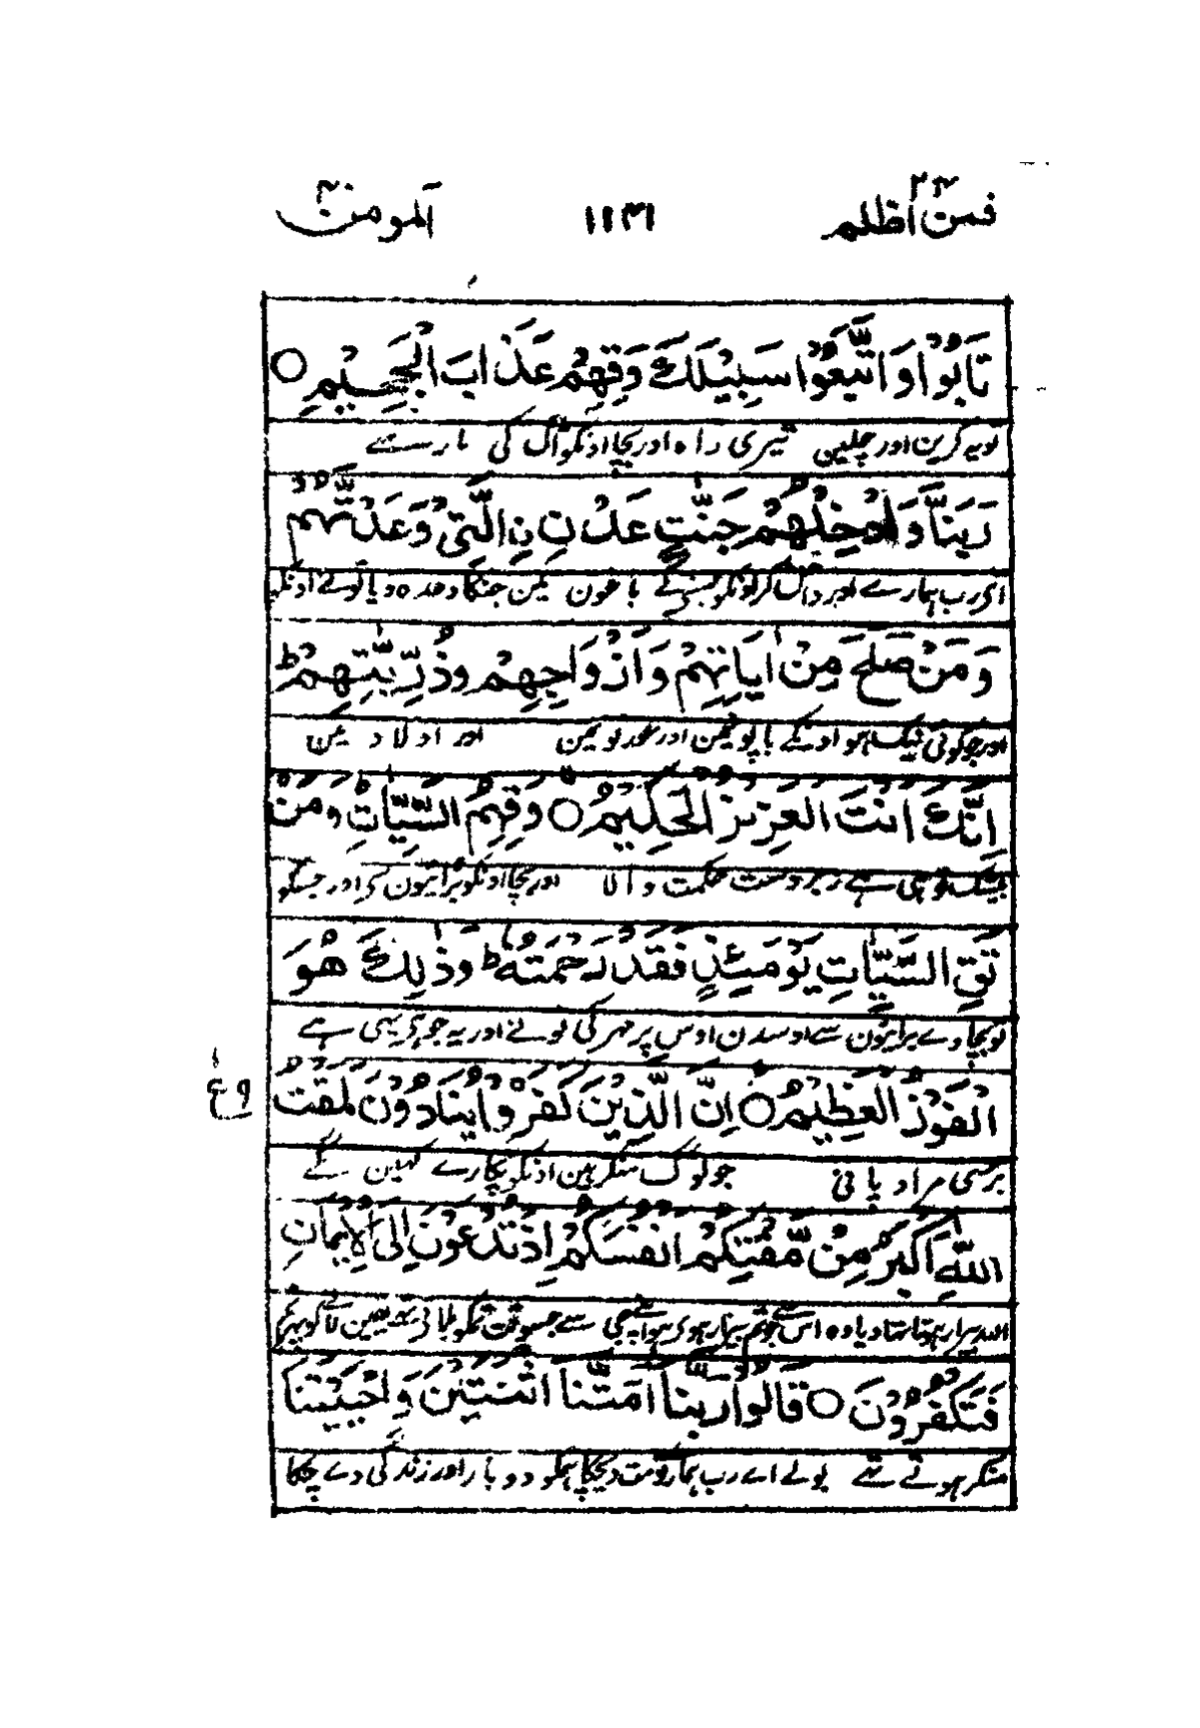 فمن اظلم ٢٤ ١١٣١ المومن ٤٠
تَابُوْا وَاتَّبَعُوْا سَبِيْلَكَ وَقِهِمْ عَذَابَ الْجَحِيْمِ ○
توبہ کرین اور چلین تیری راہ اور بچا اونکو آگ کی مار سے
رَبَّنَا وَاَدْخِلْهُمْ جَنّٰتِ عَدْنِ نِ الَّتِىْ وَعَدْتَّهُمْ
ای رب ہمارے اور داخل کر اونکو بسنے کے باغون مین جنکا وعدہ دیا تونے اونکو
وَمَنْ صَلَحَ مِنْ اٰبَآئِهِمْ وَاَزْوَاجِهِمْ وَذُرِّيّٰتِهِمْ ط
اور جو کوئی نیک ہو اونکے باپونمین اور عورتونمین اور اولاد مین
اِنَّكَ اَنْتَ الْعَزِيْزُ الْحَكِيْمُ ○ وَقِهِمُ السَّيِّاٰتِ ط وَمَنْ
بیشک توہی ہے زبردست حکمت والا اور بچا اونکو برائیون سے اور جسکو
تَقِ السَّيِّاٰتِ يَوْمَئِذٍ فَقَدْ رَحِمْتَهٗ ط وَذٰلِكَ هُوَ
تو بچاوے برائیون سے اوسدن اوس پر مہر کی تونے اور یہ جو ہے یہی ہے
الْفَوْزُ الْعَظِيْمُ ○ اِنَّ الَّذِيْنَ كَفَرُوْا يُنَادَوْنَ لَمَقْتُ
بڑی مراد پانی جو لوگ منکر ہین اونکو پکارے کہین گے
اللّٰهِ اَكْبَرُ مِنْ مَّقْتِكُمْ اَنْفُسَكُمْ اِذْ تُدْعَوْنَ اِلَى الْاِيْمَانِ
اللہ بیزار ہوتا تھا زیادہ اس سے جو تم بیزار ہوئے ہو اپنے جی سے جسوقت تمکو بلاتے تھے یقین لانے کو پھر تم
فَتَكْفُرُوْنَ ○ قَالُوْا رَبَّنَآ اَمَتَّنَا اثْنَتَيْنِ وَاَحْيَيْتَنَا
منکر ہوتے تھے بولے اے رب ہمارے تو موت دیچکا ہمکو دو بار اور زندگی دے چکا